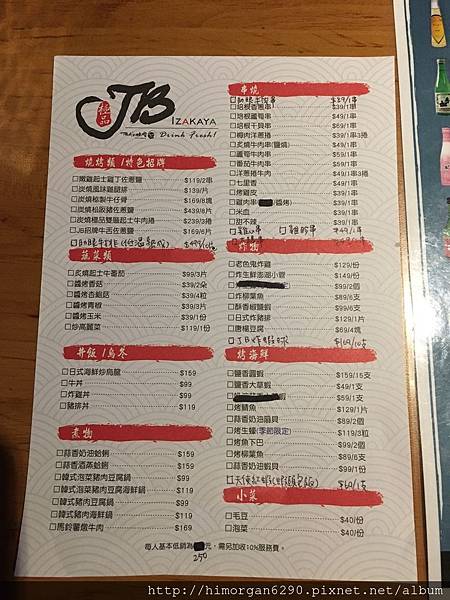 極品
JB
IZAKAYA
Drink Fresh!
燒烤類 / 特色招牌
□嫩雞起士雞丁佐蔥鹽 $119/2串
□炭燒風味雞腿排 $139/片
□炭燒極製牛仔骨 $169/8塊
□炭燒松阪豬佐蔥鹽 $439/8片
□炭燒極品雙層起士牛肉捲 $239/3捲
□JB招牌牛舌佐蔥鹽 $169/6片
蔬菜類
□炙燒起士牛番茄 $99/3片
□醬烤香菇 $39/2朵
□醬烤杏鮑菇 $39/4粒
□醬烤青椒 $39/3片
□醬烤玉米 $39/1份
□炒高麗菜 $119/1份
丼飯 / 烏冬
□日式海鮮炒烏龍 $159
□牛丼 $99
□炸雞丼 $99
□豬排丼 $99
煮物
□蒜香奶油蛤蜊 $159
□蒜香酒蒸蛤蜊 $159
□韓式泡菜豬肉豆腐鍋 $99
□韓式泡菜豬肉豆腐海鮮鍋 $119
□韓式豬肉豆腐鍋 $99
□韓式豬肉海鮮鍋 $119
□馬鈴薯燉牛肉 $169
串燒
□培根香蔥串 $39/1串
□培根蘆筍串 $39/1串
□培根干貝串 $69/1串
□樽肉洋蔥捲串 $39/1串3捲
□炙燒牛肉串(鹽燒) $49/1串
□蘆筍牛肉串 $49/1串
□番茄牛肉串 $49/1串
□洋蔥捲牛肉 $49/1串3捲
□七里香 $39/1串
□烤雞皮 $39/1串
□雞肉串 醬烤) $39/1串
□米血 $39/1串
□甜不辣 $39/1串
炸物
□老色鬼炸雞 $129/份
□炸生鮮澎湖小管 $149/份
$99/份
□炸柳葉魚 $89/6支
□酥香椒鹽蝦 $99/6支
□日式炸豬排 $129/1片
□唐楊豆腐 $69/4塊
□JB炸蝦球
烤海鮮
□鹽香圓蝦 $159/15支
□鹽香大草蝦 $49/1支
$59/1支
□烤鯖魚 $129/1片
□蒜香奶油扇貝 $89/2份
□烤生蠔(季節限定) $119/3粒
□烤魚下巴 $99/2份
□烤柳葉魚 $89/6支
□蒜香奶油蝦貝 $99/1份
小菜
□毛豆 $40/份
□泡菜 $40/份
每人基本低銷為 元，需另加收10%服務費。
250
http://himorgan6290.pixnet.net/album